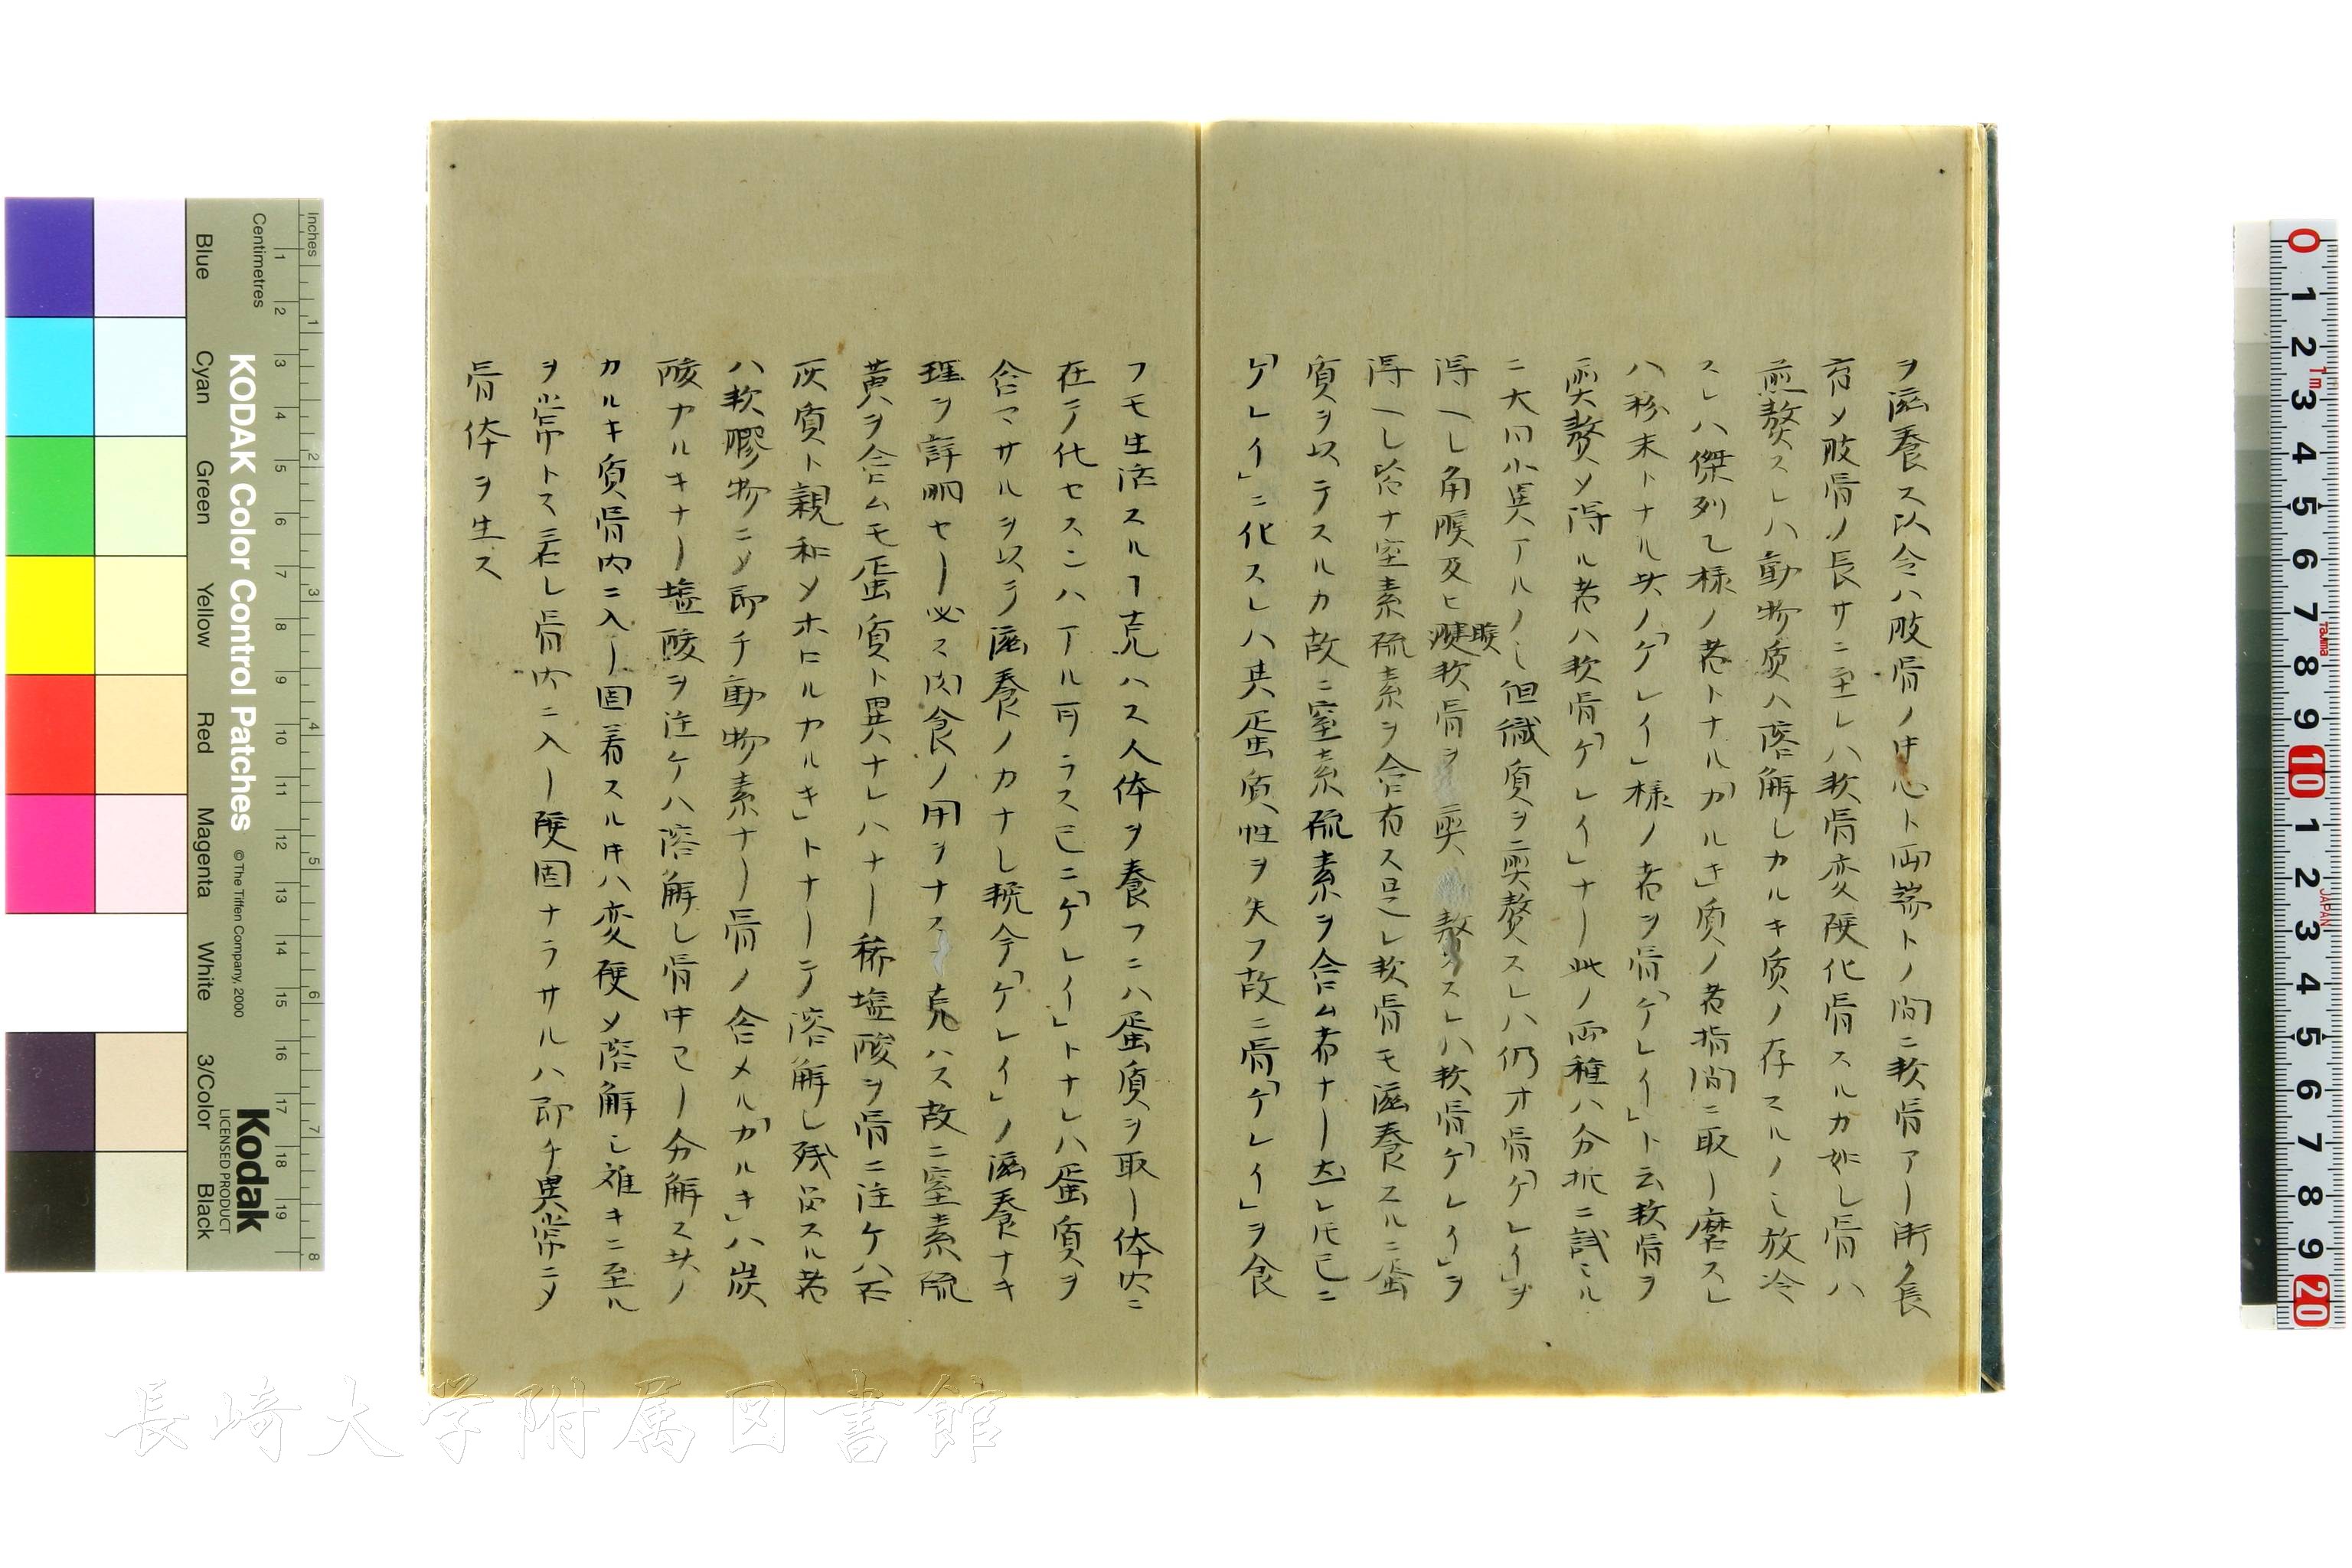 ヲ滋養ス以令ハ肢骨ノ中心ト両端トノ間ニ軟骨アリ漸ク長
育メ肢骨ノ長サニ至レハ軟骨変硬化骨スルカ如シ骨ハ
煎熬スレハ動物质ハ溶解しカルキ质ノ存スルノミ放冷
スレハ傑列乙様ノ者トナル「カルキ」质ノ者指間ニ取リ磨スレ
ハ粉末トナル其ノ「ケレイ」様ノ者ヲ骨「ケレイ」ト云軟骨ヲ
煎熬メ得ル者ハ軟骨「ケレイ」ナリ此ノ両種ハ分析ニ試ミル
ニ大同小異アルノミ但繊质ヲ煎熬スレハ仍オ骨「ケレイ」ヲ
得ヘし角喉及ヒ軟骨ヲ煎熬スレハ軟骨「ケレイ」ヲ
得ヘし皆ナ窒素硫素ヲ含有ス是レ軟骨モ滋養スルニ蛋
质ヲ以テスルカ故ニ窒素硫素ヲ含ム者ナリ然レ𪜈已ニ
「ケレイ」ニ化スレハ其蛋质性ヲ失フ故ニ骨「ケレイ」ヲ食
フモ生活スルヿ克ハス人体ヲ養フニハ蛋质ヲ取リ体内ニ
在テ化セスンハアル可ラス已ニ「ケレイ」トナレハ蛋质ヲ
含マサルヲ以テ滋養ノカナし統令「ケレイ」ノ滋養ナキ
理ヲ詳明セリ必ス肉食ノ用ヲナスヿ克ハス故ニ窒素硫
黄ヲ含ムモ蛋质ト異ナレハナリ稀塩酸ヲ骨ニ注ケハ石
灰质ト親和メホロルカルキ」トナリテ溶解し残留スル者
ハ軟膠物ニメ即チ動物素ナリ骨ノ含メル「カルキ」ハ炭
酸カルキナリ塩酸ヲ注ケハ溶解し骨中ニリ分解ス其ノ
カルキ质骨内ニ入リ固着スル𪜈ハ変硬メ溶解し難キニ至ル
ヲ常トス若し骨内ニ入リ硬固ナラサルハ即チ異常ニメ
骨体ヲ生ス
Inches
Centimetres
KODAK Color Control Patches
© The Tiffen Company, 2000
Kodak
LICENSED PRODUCT
Blue
Cyan
Green
Yellow
Red
Magenta
White
3/Color
Black
長崎大学附属図書館